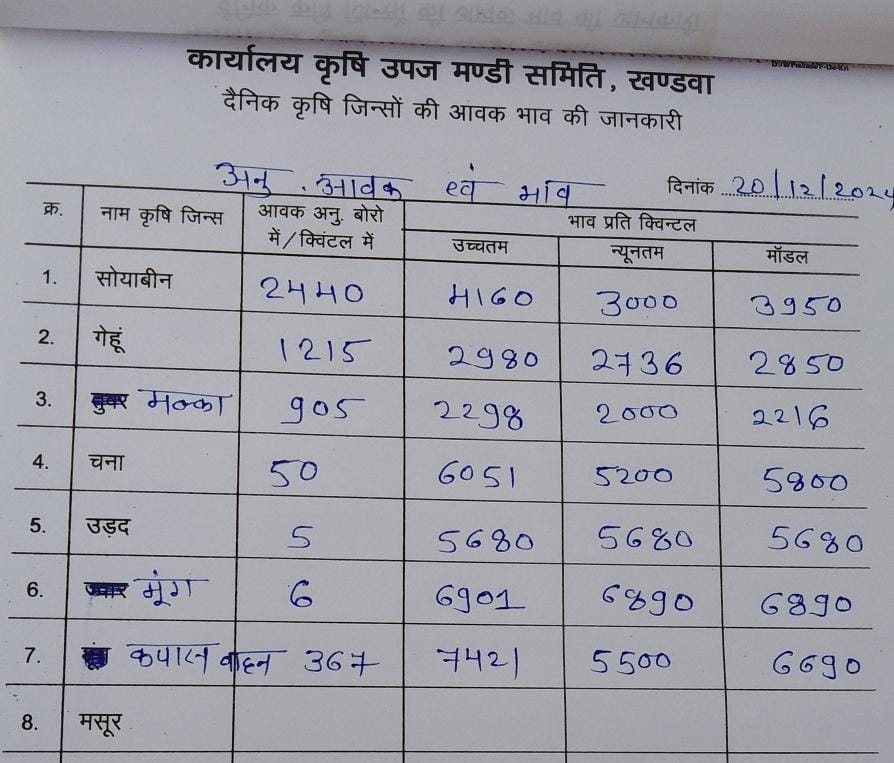 कार्यालय कृषि उपज मण्डी समिति, खण्डवा
दैनिक कृषि जिन्सों की आवक भाव की जानकारी
अनु. आवक एवं भाव दिनांक 20/12/2024
क्र. नाम कृषि जिन्स आवक अनु. बोरो में/क्विंटल में भाव प्रति क्विन्टल
उच्चतम न्यूनतम मॉडल
1. सोयाबीन 2440 4160 3000 3950
2. गेहूं 1215 2980 2736 2850
3. मक्का 905 2298 2000 2216
4. चना 50 6051 5200 5800
5. उड़द 5 5680 5680 5680
6. मूंग 6 6901 6890 6890
7. कपास वाहन 367 7421 5500 6690
8. मसूर